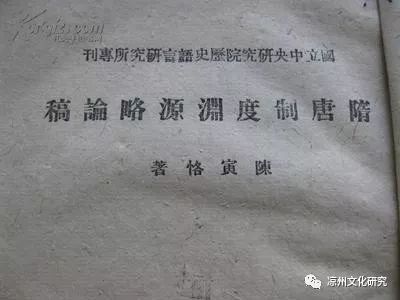 國立中央研究院歷史語言研究所專刊
隋唐制度淵源略論稿
陳寅恪著
凉州文化研究